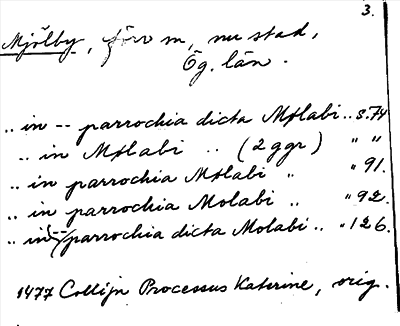 3.
Mjölby, förr sn, nu stad,
Ög. län.
.. in -- parrochia dicta Mølabi .. s. 74
.. in Mølabi .. (2 ggr) " "
.. in parrochia Mølabi " " 91.
.. in parrochia Molabi .. " 92.
.. in (--) parrochia dicta Molabi .. " 126.
1477 Collijn Processus Katerine, orig.